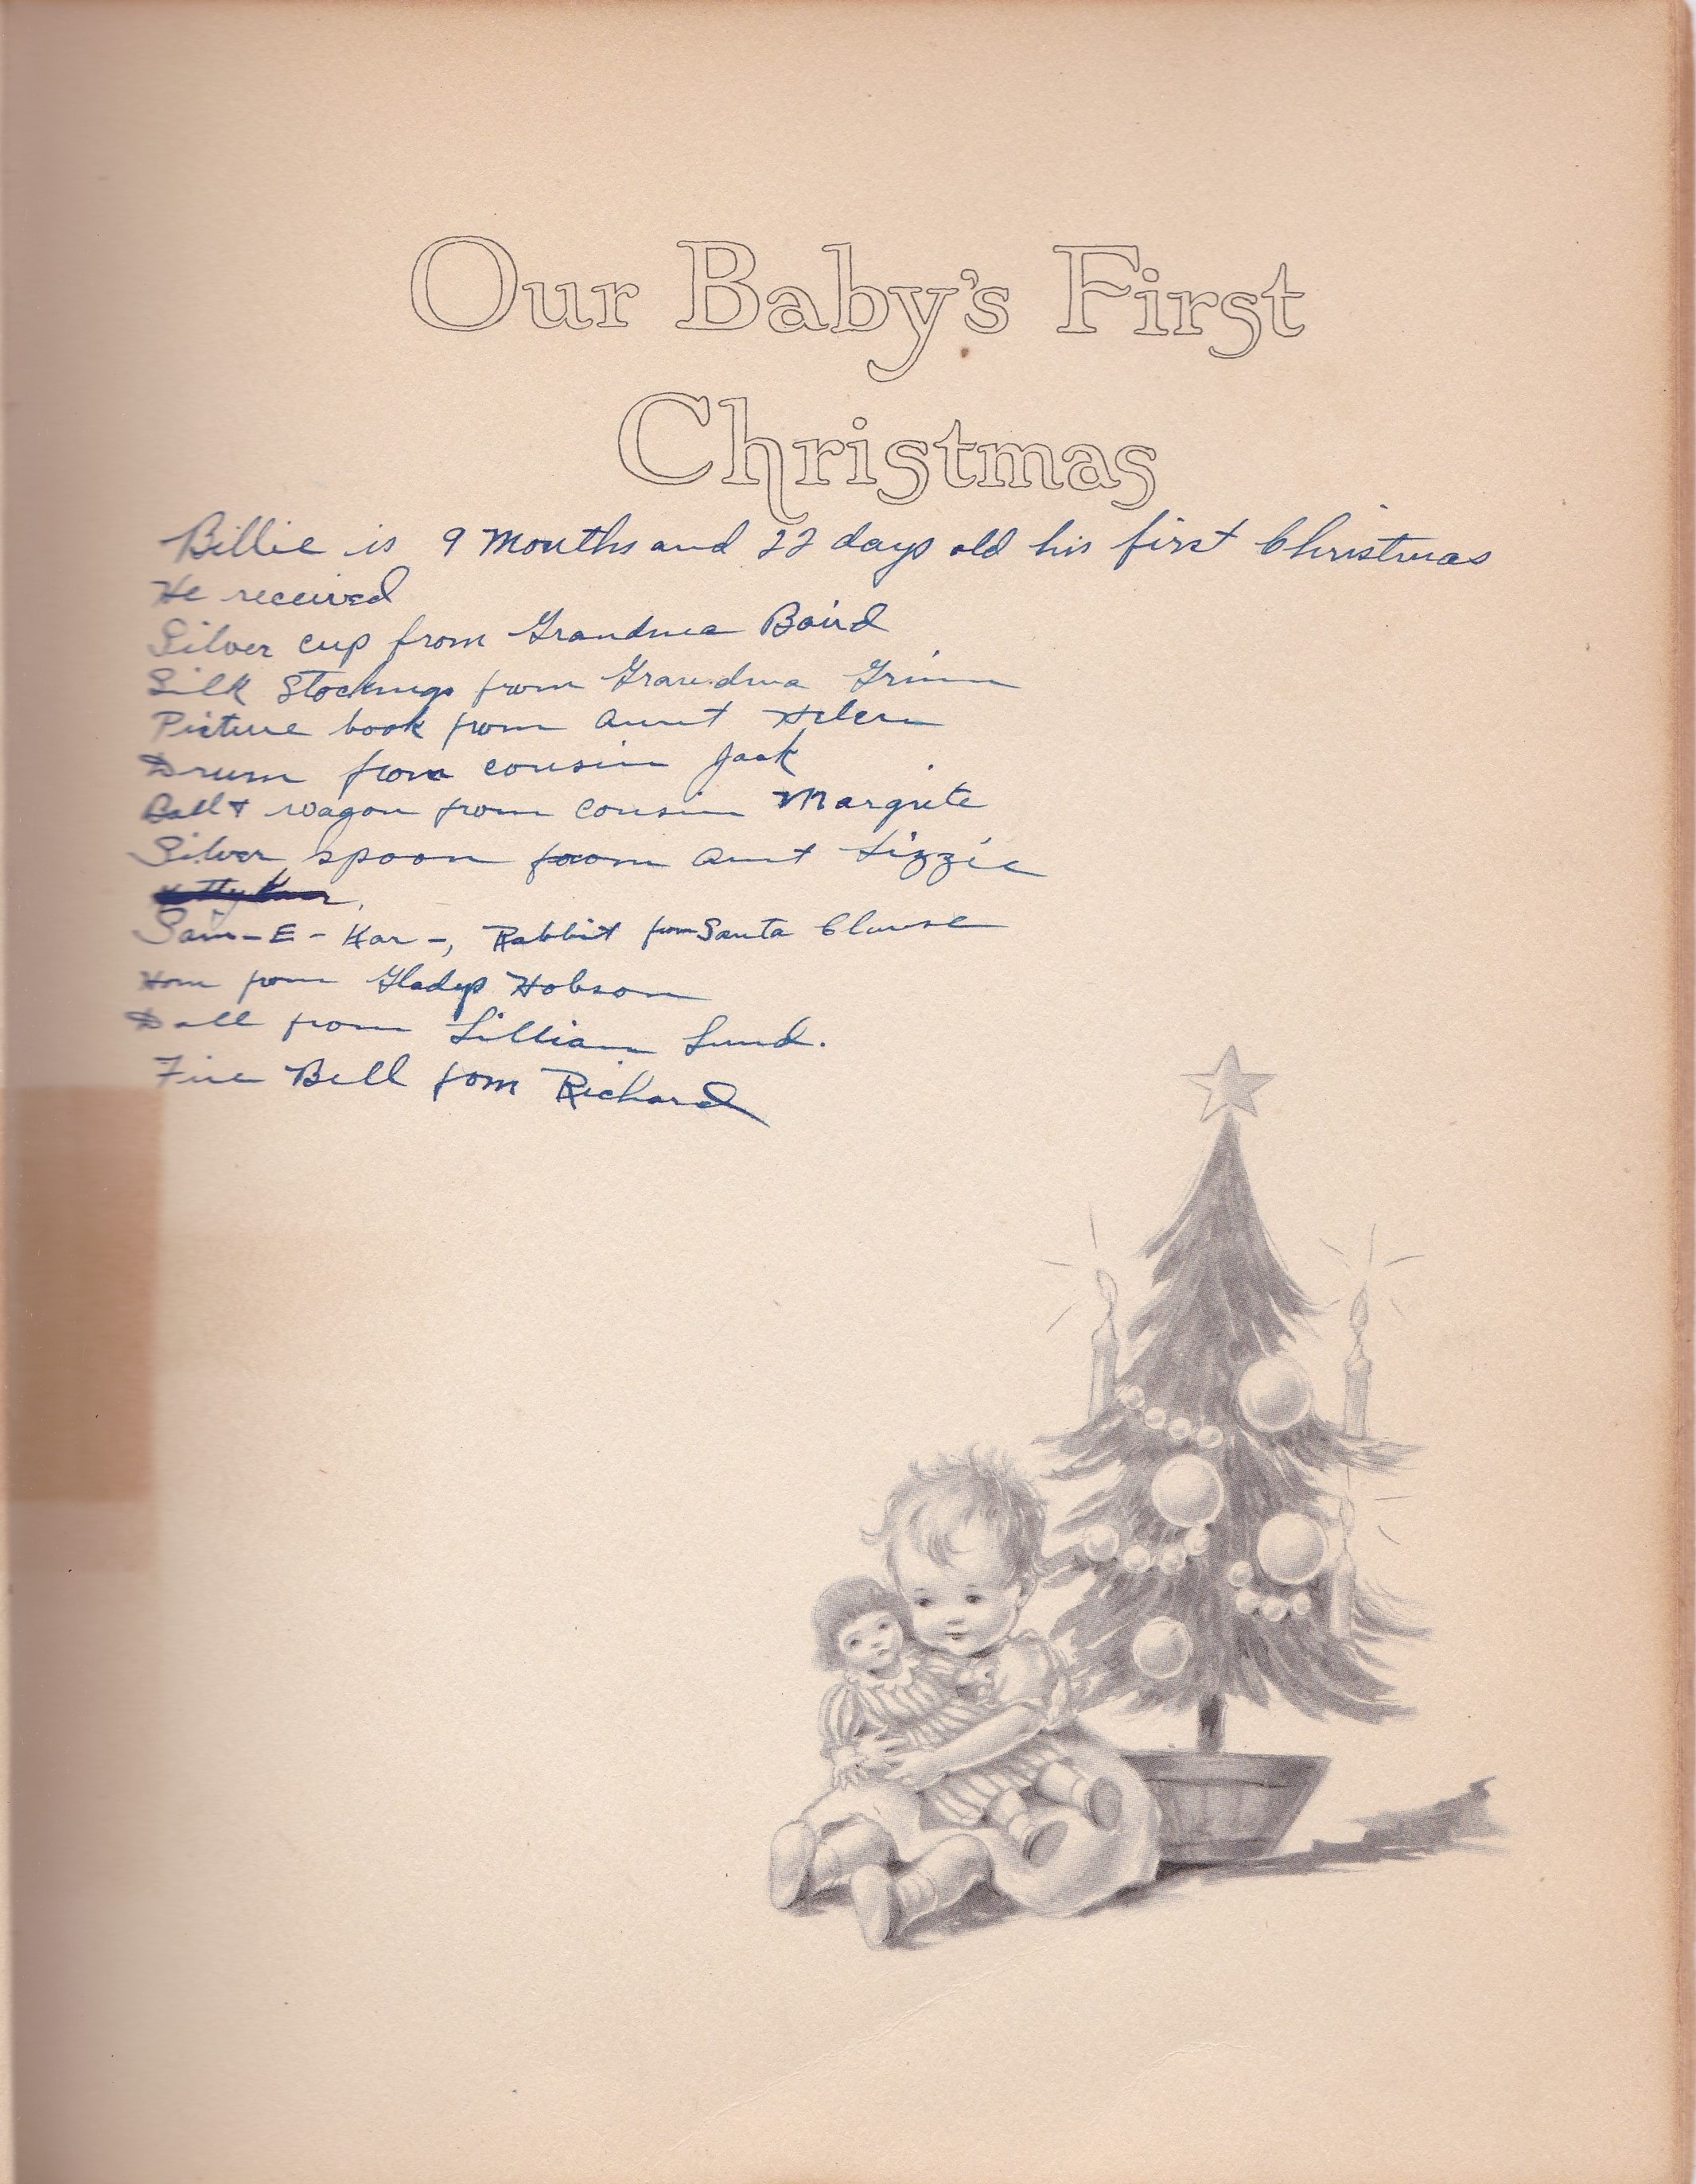 Our Baby's First
Christmas
Billie is 9 Months and 22 days old his first Christmas
He received
Silver cup from Grandma Baird
Silk Stockings from Grandma Grimm
Picture book from Aunt Helen
Drum from cousin Jack
Ball & wagon from cousin Margrite
Silver spoon from Aunt Lizzie
Sam-E-Kar-, Rabbit from Santa Clause
Horn from Gladys Hobson
Doll from Lillian Lund.
Fire Bell fom Richard